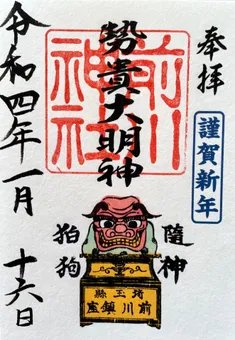 奉拝
謹賀新年
前川
神社
勢貴大明神
令和四年一月
十六日
随神
狛狗
埼玉縣
前川鎮座